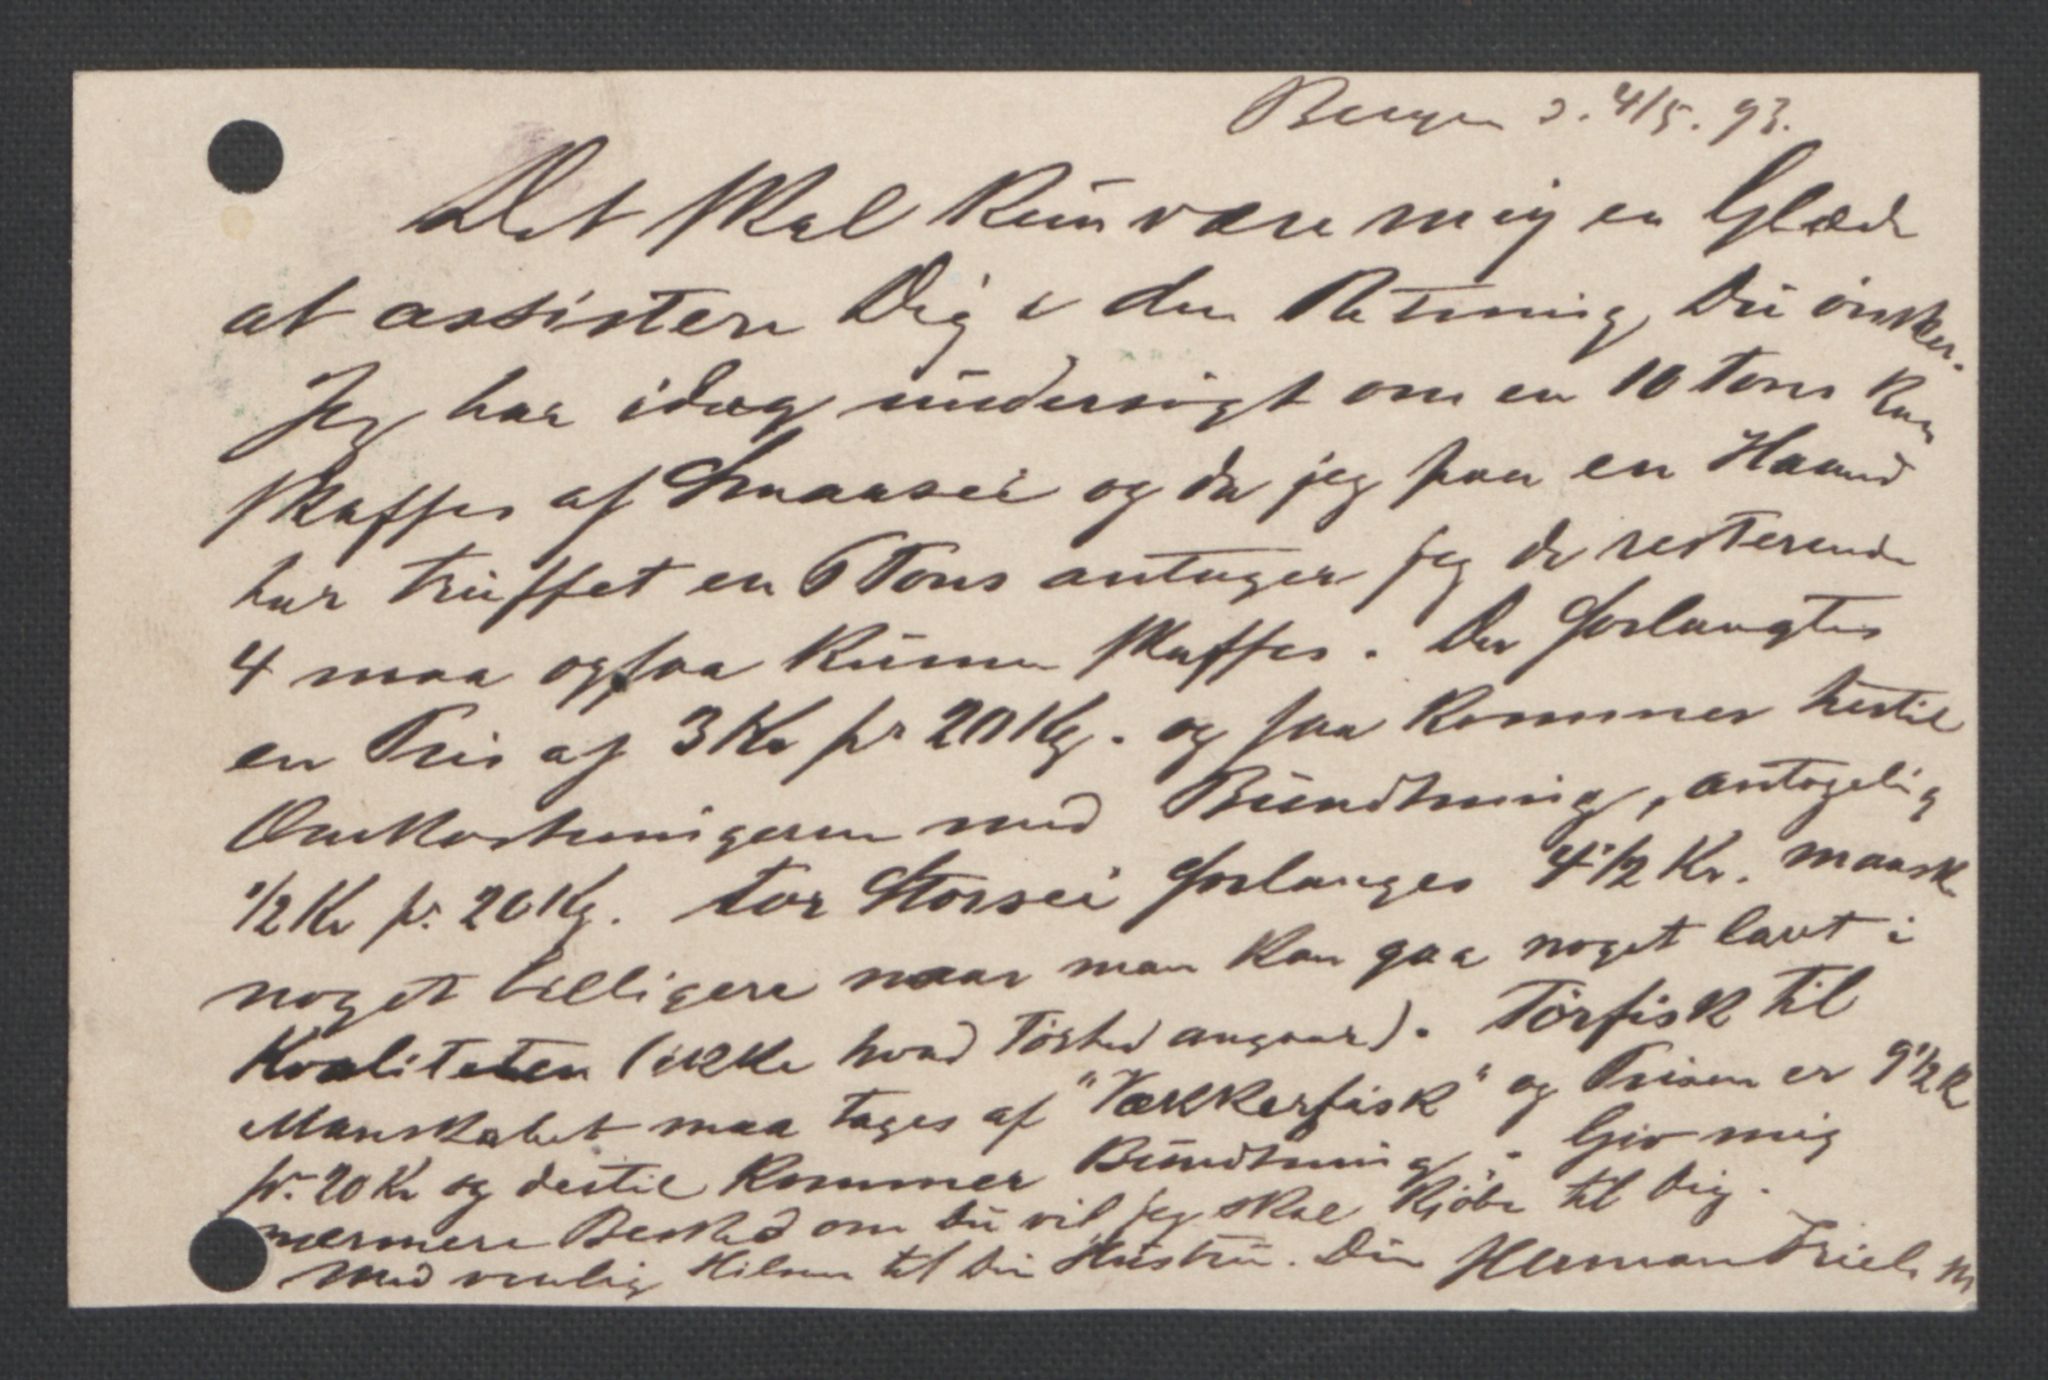 Bergen d. 4/5. 93.
Det skal kun være mig en Glæde
at assistere Dig i den Retning, Du ønsker.
Jeg har idag undersøgt om en 10 Tons kan
skaffes af Smaasei og da jeg paa en Haand
har truffet en 6 Tons antager jeg de resterende
4 maa ogsaa kunne skaffes. Der forlangtes
en Pris af 3 Kr pr 20 Kg. og saa kommer hertil
Omkostningerne med Bundtning, antagelig
1/2 Kr pr. 20 Kg. For Storsei forlanges 4 1/2 Kr. maaske
noget billigere naar man kan gaa noget lavt i
Kvaliteten (ikke hvad Tørhed angaar). Tørfisk til
Mandskabet maa tages af "Vækkerfisk" og Prisen er 9 1/2 K
pr. 20 Kr og dertil kommer Bundtning. Giv mig
nærmere Besked om Du vil jeg skal kjøbe til Dig.
Med venlig Hilsen til Din Hustru. Din Herman Friele